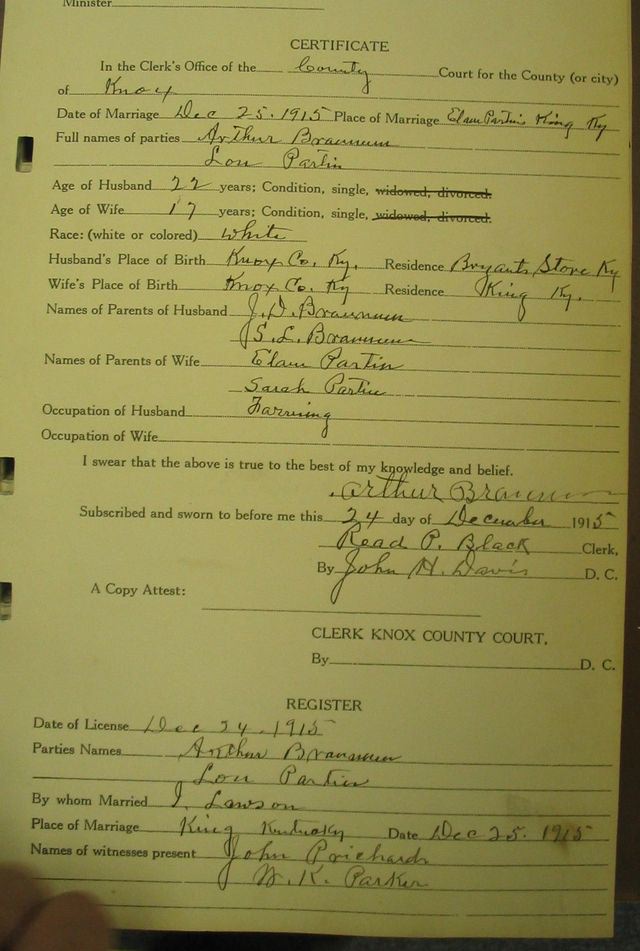 Minister
CERTIFICATE
In the Clerk's Office of the County Court for the County (or city)
of Knox
Date of Marriage Dec 25. 1915 Place of Marriage Elam Partins King Ky
Full names of parties Arthur Brannum
Lou Partin
Age of Husband 22 years; Condition, single, widowed, divorced.
Age of Wife 17 years; Condition, single, widowed, divorced.
Race: (white or colored) White
Husband's Place of Birth Knox Co. Ky. Residence Bryants Store Ky
Wife's Place of Birth Knox Co. Ky Residence King Ky.
Names of Parents of Husband J. D. Brannum
S. L. Brannum
Names of Parents of Wife Elam Partin
Sarah Partin
Occupation of Husband Farming
Occupation of Wife
I swear that the above is true to the best of my knowledge and belief.
Arthur Brannum
Subscribed and sworn to before me this 24 day of December 1915
Read P. Black Clerk,
By John H. Davis D. C.
A Copy Attest:
CLERK KNOX COUNTY COURT.
By D. C.
REGISTER
Date of License Dec 24. 1915
Parties Names Arthur Brannum
Lou Partin
By whom Married I. Lawson
Place of Marriage King Kentucky Date Dec 25. 1915
Names of witnesses present John Prichard
W. K. Parker